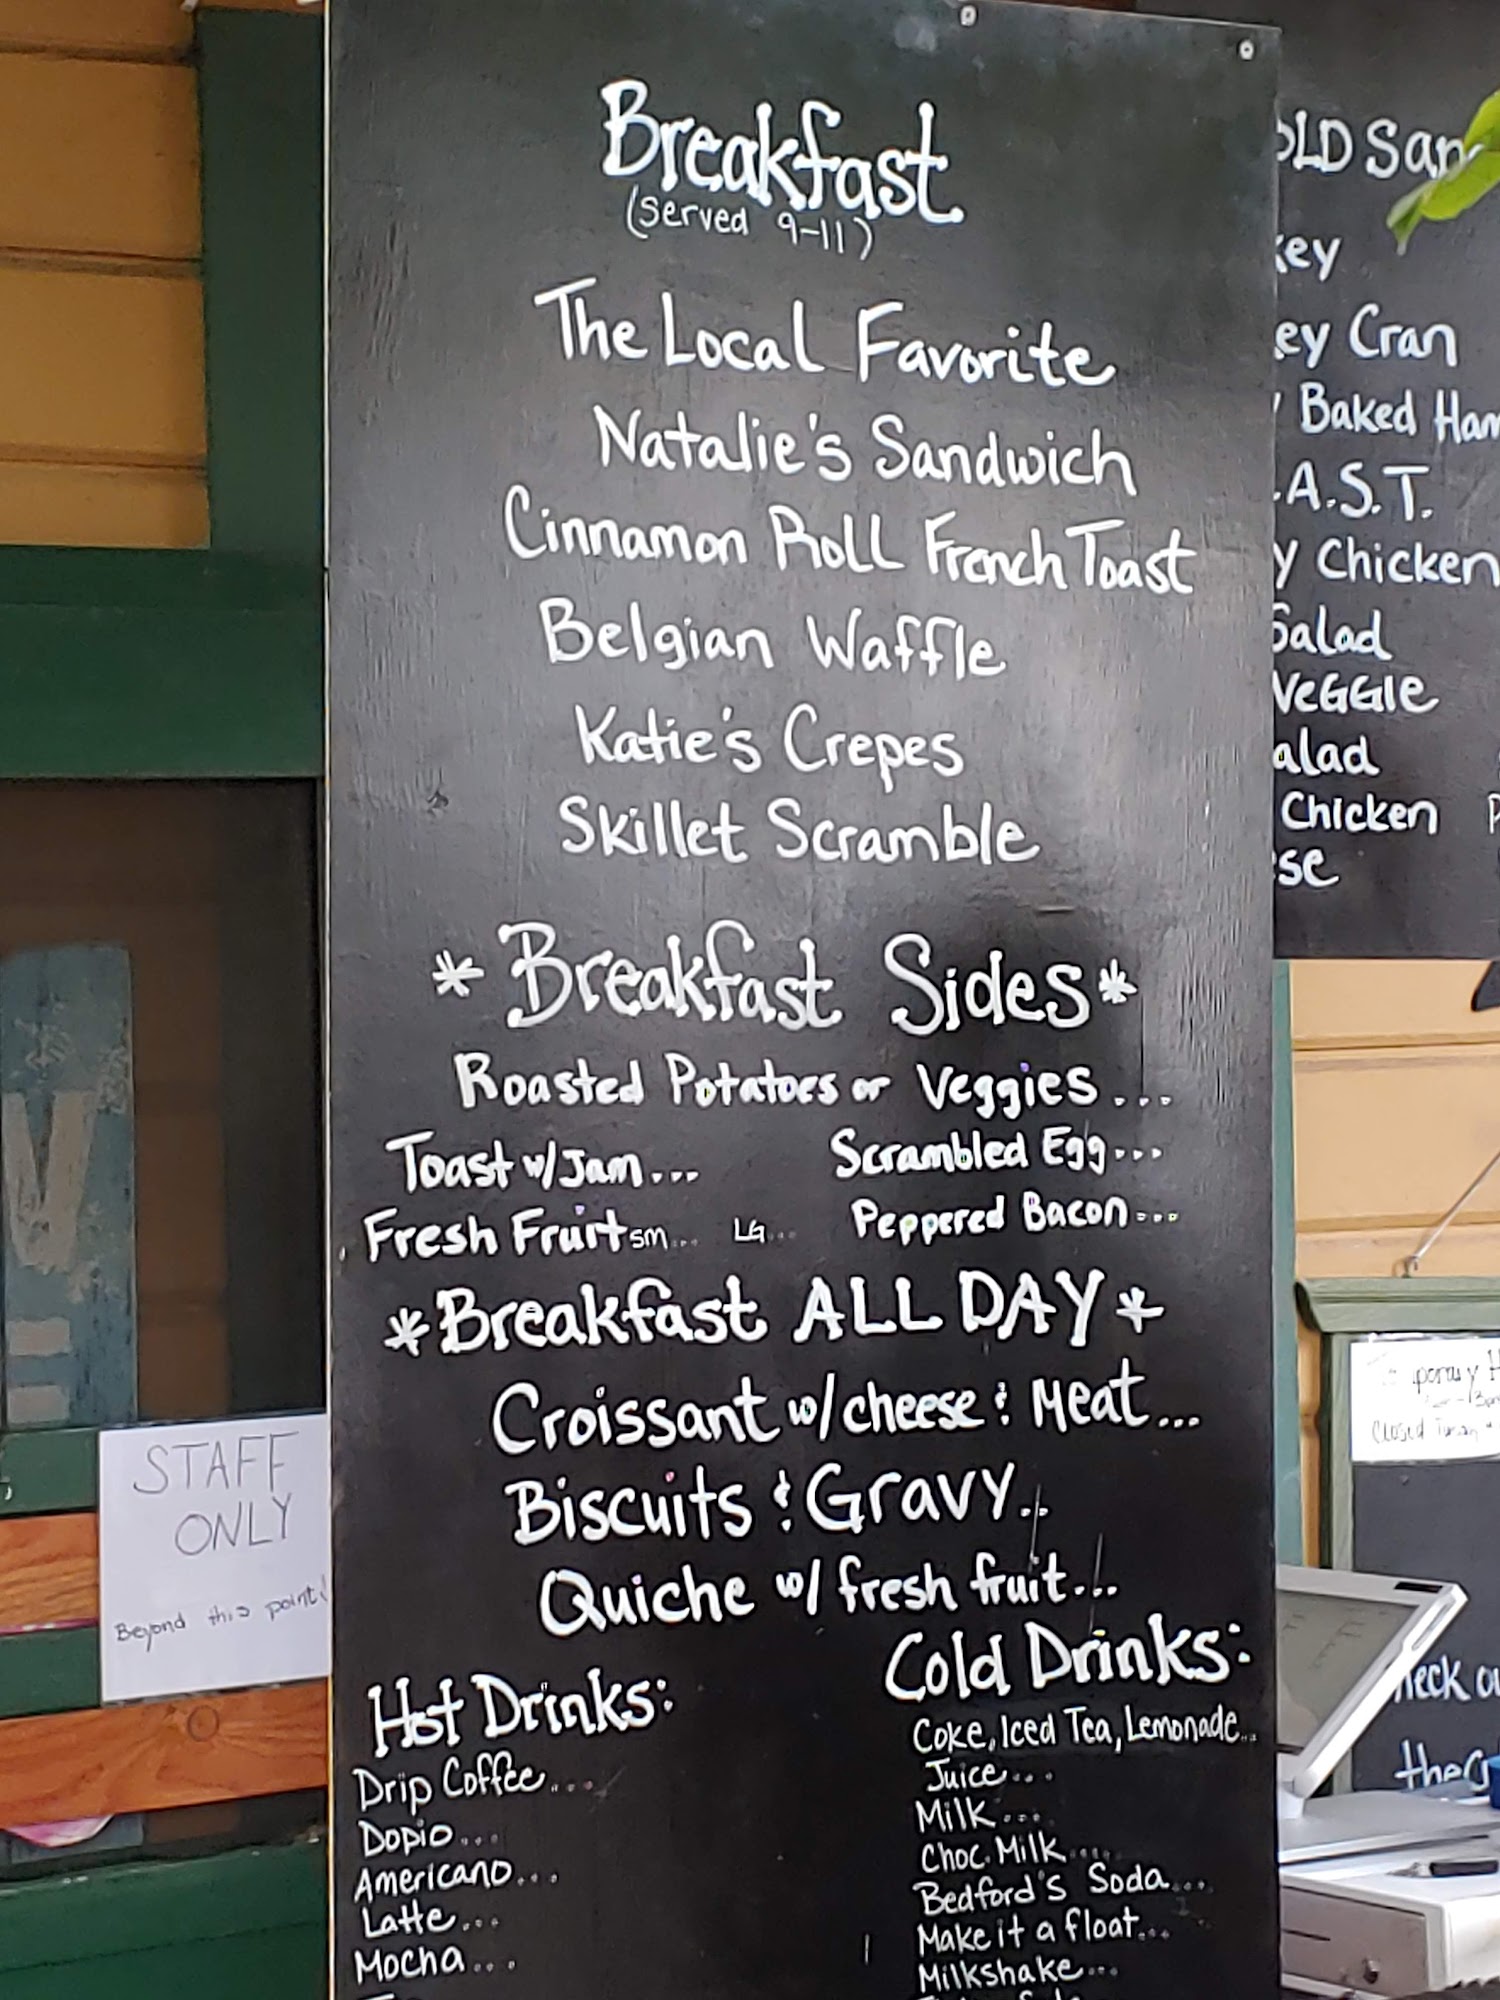 Breakfast
(served 9-11)
The Local Favorite
Natalie's Sandwich
Cinnamon Roll French Toast
Belgian Waffle
Katie's Crepes
Skillet Scramble
*Breakfast Sides*
Roasted Potatoes or Veggies...
Toast w/Jam...
Scrambled Egg...
Fresh Fruit sm... LG...
Peppered Bacon....
*Breakfast ALL DAY*
Croissant w/cheese & Meat...
Biscuits & Gravy..
Quiche w/ fresh fruit...
Hot Drinks:
Drip Coffee....
Dopio...
Americano...
Latte...
Mocha...
Cold Drinks:
Coke, Iced Tea, Lemonade...
Juice...
Milk...
Choc. Milk....
Bedford's Soda....
Make it a float...
Milkshake...
OLD San
key
ey Cran
Baked Ham
.A.S.T.
y Chicken
Salad
VeGGIe
alad
Chicken P
se
STAFF
ONLY
Beyond this point!
porary H
Closed
heck ou
the